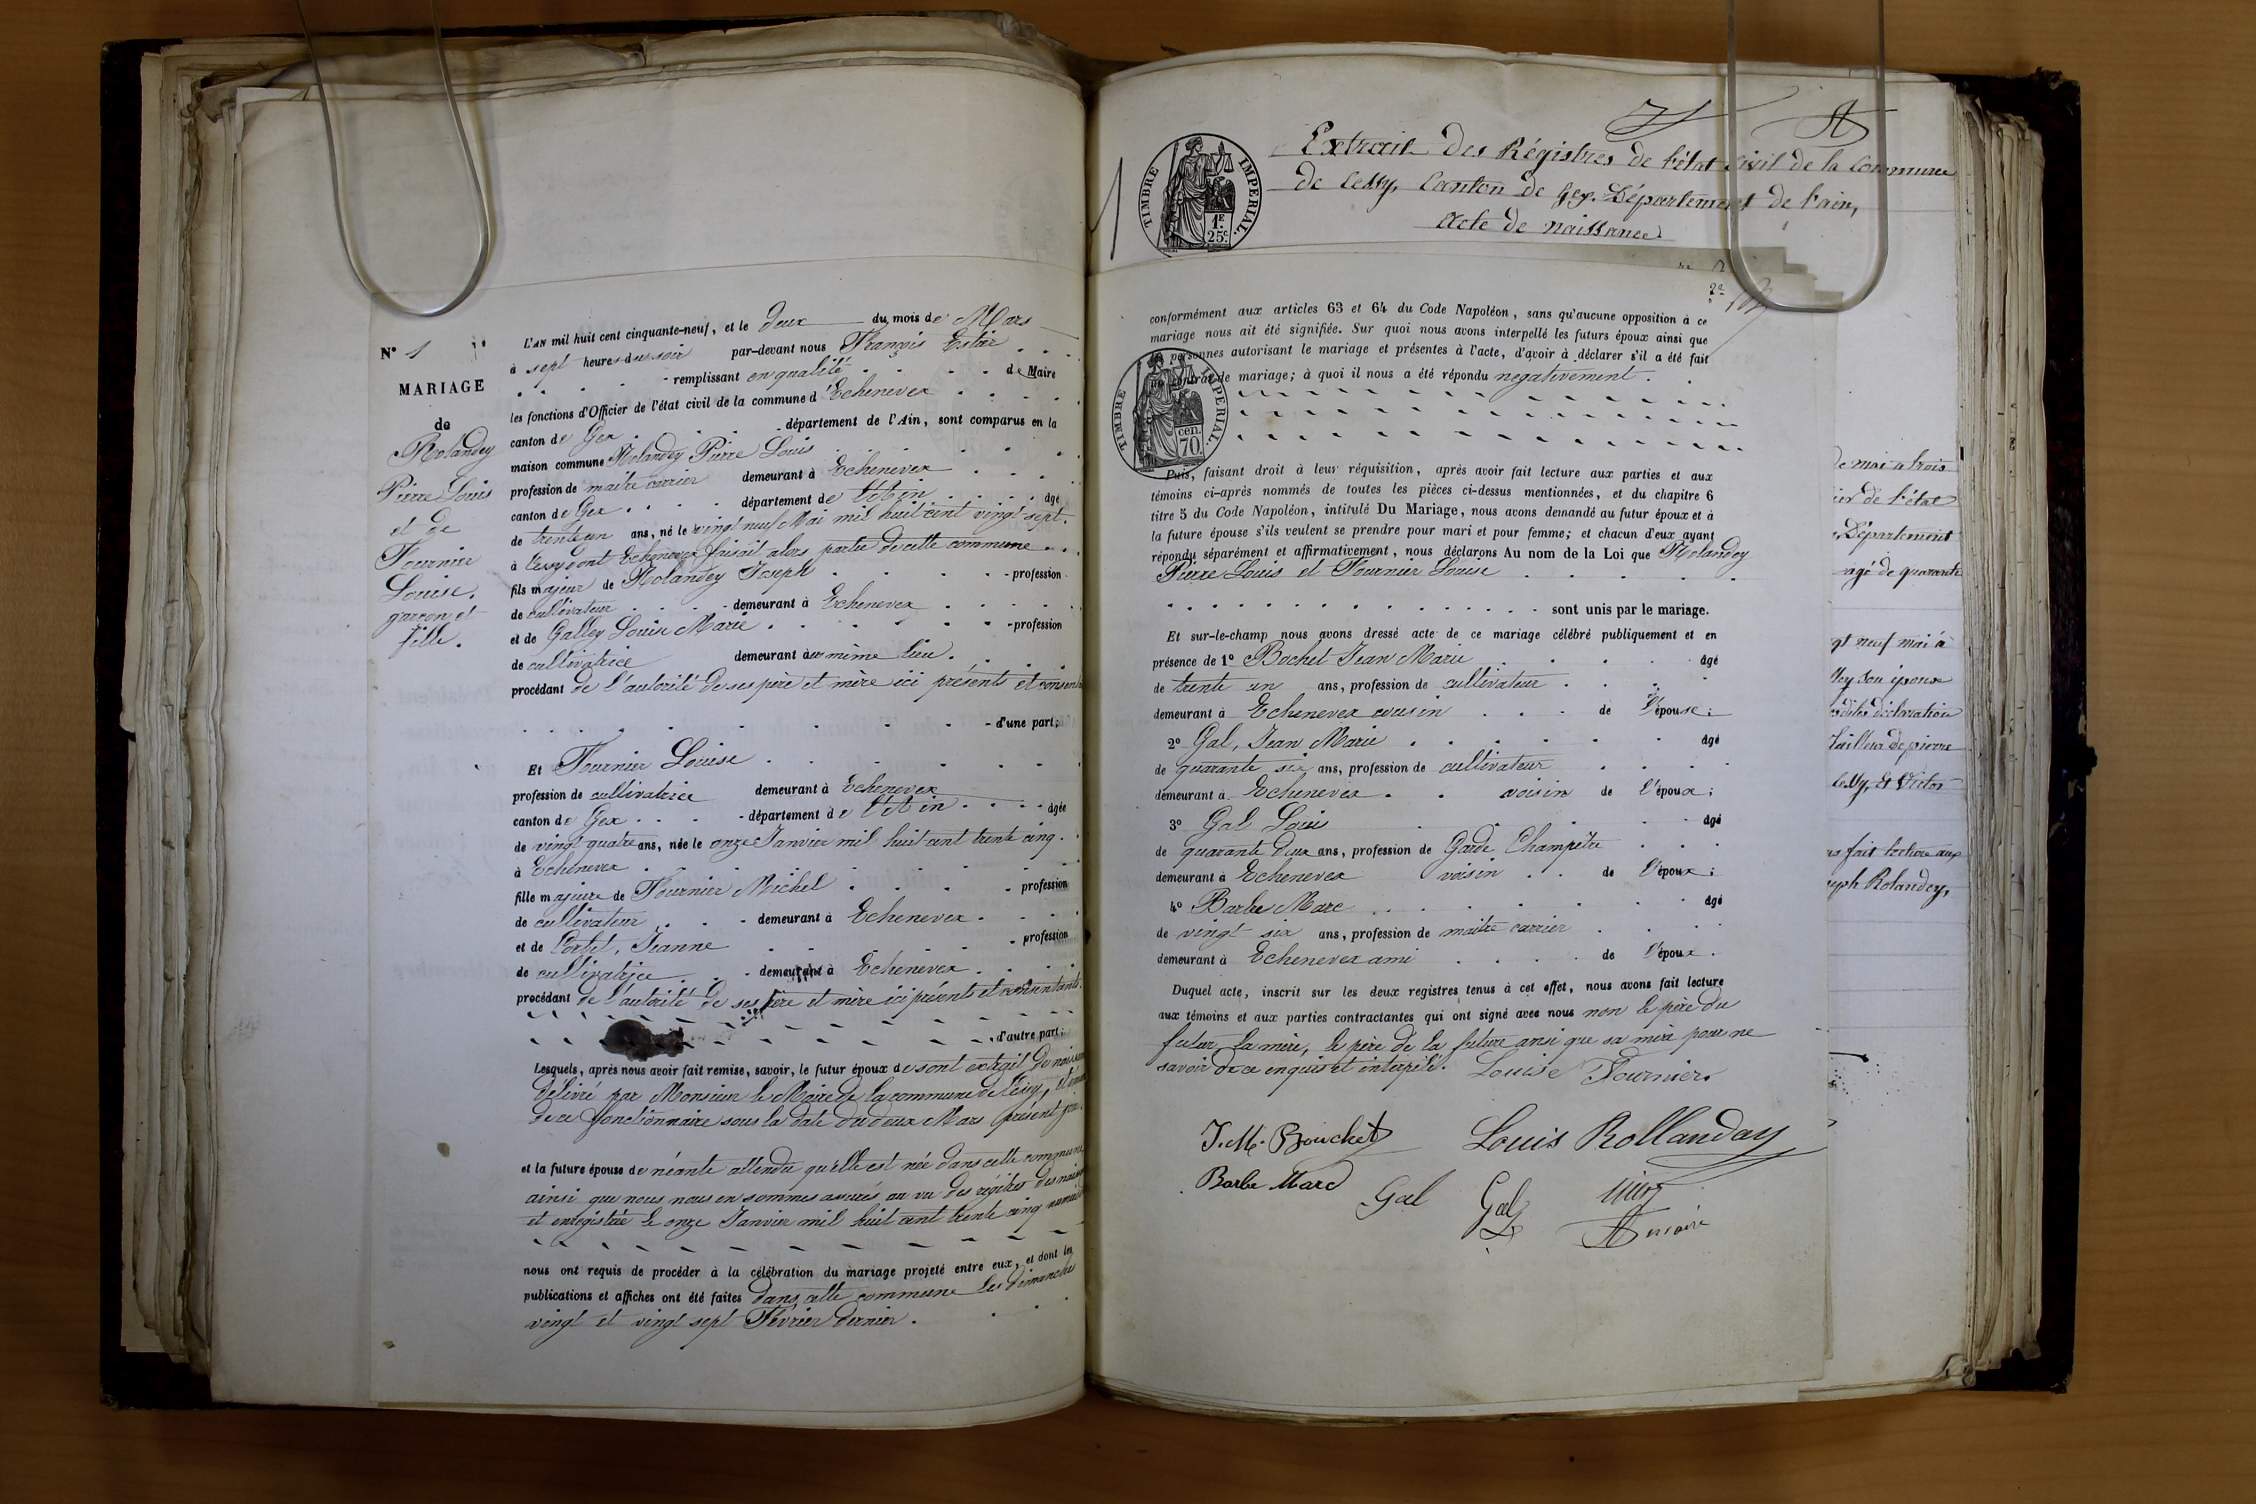 N° 1
MARIAGE
de
Rolandey
Pierre Louis
et de
Fournier
Louise.
garçon et
fille.
L'AN mil huit cent cinquante-neuf, et le deux du mois de Mars
à sept heures du soir par-devant nous François Estier
remplissant en qualité de Maire
les fonctions d'Officier de l'état civil de la commune d'Echenevex
canton de Gex département de l'Ain, sont comparus en la
maison commune Rolandey Pierre Louis
profession de maitre carrier demeurant à Echenevex
canton de Gex département de l'Ain âgé
de trente un ans, né le vingt neuf Mai mil huit cent vingt sept.
à Cessy dont Echenevex faisait alors partie de cette commune
fils majeur de Rolandey Joseph profession
de cultivateur demeurant à Echenevex
et de Galley Louise Marie profession
de cultivatrice demeurant au même lieu.
procédant de l'autorité de ses père et mère ici présents et
d'une part;
Et Fournier Louise
profession de cultivatrice demeurant à Echenevex
canton de Gex département de l'Ain âgée
de vingt quatre ans, née le onze Janvier mil huit cent trente cinq.
à Echenevex
fille majeure de Fournier Michel profession
de cultivateur demeurant à Echenevex
et de Portet, Jeanne profession
de cultivatrice demeurant à Echenevex
procédant de l'autorité de ses père et mère ici présents et consentants.
d'autre part;
Lesquels, après nous avoir fait remise, savoir, le futur époux de sont extrait de
délivré par Monsieur le Maire de la commune de Cessy,
de ce fonctionnaire sous la date du deux Mars présent
et la future épouse de néante attendu qu'elle est née dans cette commune,
ainsi que nous nous en sommes assurés au vu des régistres des
et enregistrée le onze Janvier mil huit cent trente cinq
nous ont requis de procéder à la célébration du mariage projeté entre eux, et dont les
publications et affiches ont été faites dans cette commune les dimanches
vingt et vingt sept Février dernier.
Extrait des Régistres de l'état civil de la Commune
de Cessy, Canton de Gex. Département de l'ain,
Acte de naissance
TIMBRE IMPERIAL.
1F.
25c.
conformément aux articles 63 et 64 du Code Napoléon, sans qu'aucune opposition à ce
mariage nous ait été signifiée. Sur quoi nous avons interpellé les futurs époux ainsi que
les personnes autorisant le mariage et présentes à l'acte, d'avoir à déclarer s'il a été fait
un contrat de mariage; à quoi il nous a été répondu negativement.
TIMBRE IMPERIAL.
cen.
70.
Puis, faisant droit à leur réquisition, après avoir fait lecture aux parties et aux
témoins ci-après nommés de toutes les pièces ci-dessus mentionnées, et du chapitre 6
titre 5 du Code Napoléon, intitulé Du Mariage, nous avons demandé au futur époux et à
la future épouse s'ils veulent se prendre pour mari et pour femme; et chacun d'eux ayant
répondu séparément et affirmativement, nous déclarons Au nom de la Loi que Rolandey
Pierre Louis et Fournier Louise
sont unis par le mariage.
Et sur-le-champ nous avons dressé acte de ce mariage célébré publiquement et en
présence de 1° Bochet Jean Marie âgé
de trente un ans, profession de cultivateur
demeurant à Echenevex cousin de l'épouse;
2° Gal, Jean Marie âgé
de quarante six ans, profession de cultivateur
demeurant à Echenevex voisin de l'époux;
3° Gal Louis âgé
de quarante deux ans, profession de Garde Champêtre
demeurant à Echenevex voisin de l'époux;
4° Barbe Marc âgé
de vingt six ans, profession de maitre carrier
demeurant à Echenevex ami de l'époux.
Duquel acte, inscrit sur les deux registres tenus à cet effet, nous avons fait lecture
aux témoins et aux parties contractantes qui ont signé avec nous non le père du
futur, la mère, le père de la future ansi que sa mère pour ne
savoir de ce enquis et interpélé. Louise Fournier
J. M. Bouchet Louis Rollanday
Barbe Marc Gal Gal
de mai a trois
de l'état
Département
agé de quarante
neuf mai à
son épouse
déclaration
Tailleur de pierre
Cessy, et Victor
fait lecture aux
Rolandey,